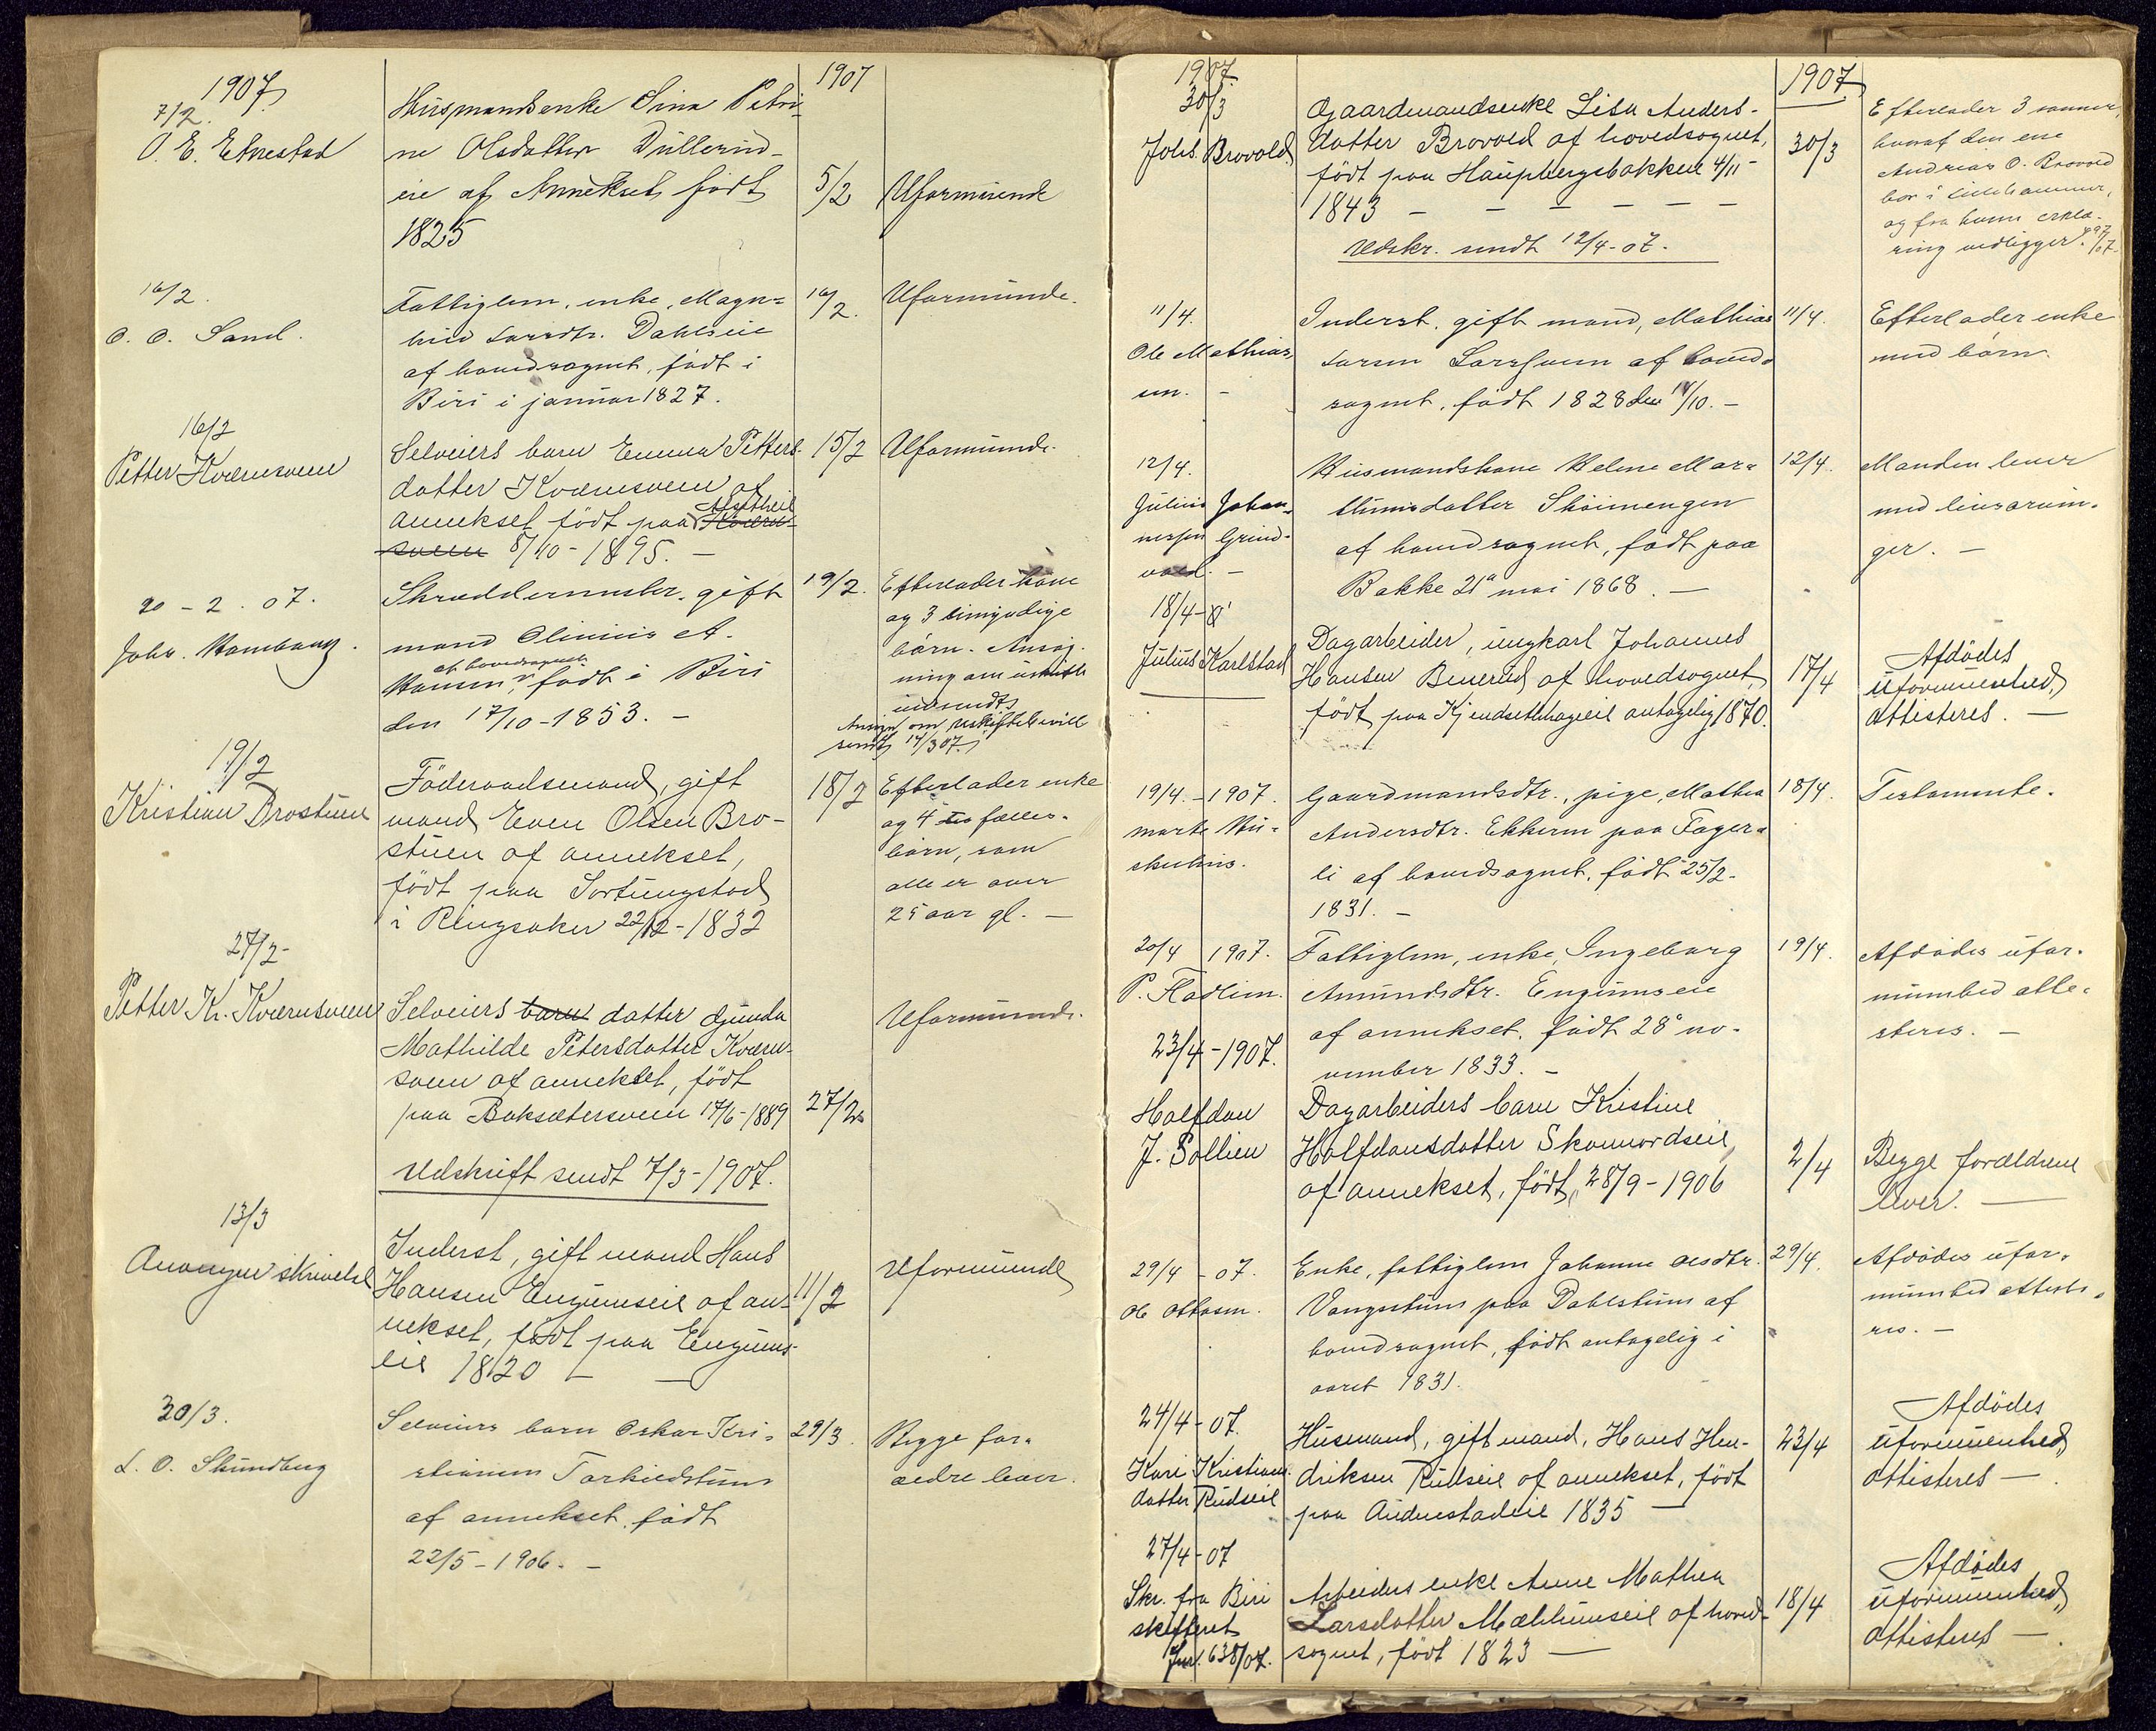 1907
7/2.
O. E. Etnestad
Husmandsenke Sina Petri-
ne Olsdatter Dullerud-
eie af Annekset født
1825
1907
5/2
Uformuende
16/2.
O. O. Sand.
Fattiglem, enke, Magn=
hild Larsdtr. Dahlseie
af hovedsognet, født i
Biri i januar 1827.
16/2.
Uformuende.
16/2
Petter Kvernsveen
Selveiers barn Emma Petters-
datter Kvernsveen af
annekset født paa Kvern-
sveen 8/10-1895. -
15/2
Uformuende.
20-2.07.
Johs.
Skreddermester, gift
mand Olinius A.
af hovedsognet
Hansen, født i Biri
den 17/10-1853. -
19/2.
Efterlader kone
og 3 umyndige
børn. Ansøg-
ning om uskifte
indsendt
om uskiftebevill
sendt 14/3 07.
19/2
Kristian Brostuen
Føderaadsmand, gift
mand Even Olsen Bro-
stuen af annekset,
født paa Sortungstad
i Ringsaker 22/12-1832
18/2
Efterlader enke
og 4 fælles-
børn, som
alle er over
25 aar gl. -
27/2-
Petter Kr. Kvernsveen
Selveiers barn datter Gunda
Mathilde Petersdatter Kvern-
sveen af annekset, født
paa Baksætersveen 17/6-1889
27/2
Uformuende.
Udskrift sendt 7/3-1907.
13/3
Anonym skrivelse
Inderst, gift mand Hans
Hansen Engumseie af an-
nekset, født paa Engums-
eie 1820 -
11/2
Uformuende
30/3.
L. O. Skundberg
Selveiers barn Oskar Kri-
stiansen Torkildstuen
af annekset, født
22/5-1906. -
29/3.
Begge for-
ældre lever.
1907
30/3
Johs. Brovold
Gaardmandsenke Lisa Anders-
datter Brovold af hovedsognet,
født paa Haugsbergsbakken 4/11-
1843 - - - - - -
Udskr. sendt 12/4-07.
1907
30/3
Efterlader 3 sønner,
hvoraf den ene
Andreas O. Brovold
bor i Lillehammer,
og fra ham erklæ-
ring vedligger.
11/4.
Ole Mathias-
sen. -
Inderst, gift mand, Mathias
Larsen Larshuen af hoved-
sognet, født 1828 den 14/10. -
11/4.
Efterlader enke
med børn.
12/4.
Julius Johan-
nessen Grind-
vold. -
Husmandskone Helene Mar-
thinusdatter Skøiengen
af hovedsognet, født paa
Bakke 21de mai 1868. -
12/4.
Manden lever
med livsarvin-
ger. -
18/4-07
Julius Karlstad
Dagarbeider, ungkarl Johannes
Hansen Benerud af hovedsognet,
født paa Kjendsethageeie antagelig 1870.
17/4
Afdødes
uformuenhed
attisteres. -
19/4.-1907.
Marte Hu-
skelhus.
Gaardmandsdtr., pige, Mathea
Andersdtr. Ekkern paa Fager-
li af hovedsognet, født 25/2-
1831. -
18/4.
Testamente.
20/4 1907.
P. Fladlien.
Fattiglem, enke, Ingeborg
Amundsdtr. Engumseie
af annekset, født 28de no-
vember 1833. -
19/4.
Afdødes ufor-
muenhed atte-
steres. -
23/4-1907.
Halfdan
J. Sollien
Dagarbeiders barn Kristine
Halfdansdatter Skonnordseie,
af annekset, født 28/9-1906
2/4
Begge forældrene
lever. -
29/4-07.
Ole Ottosen.
Enke, fattiglem Johanne Olsdtr.
Vangstuen paa Dahlstuen af
hovedsognet, født antagelig i
aaret 1831.
29/4.
Afdødes ufor-
muenhed atteste-
res. -
24/4-07.
Kari Kristians-
datter Rudseie
Husmand, gift mand, Hans Hen-
driksen Rudseie af annekset, født
paa Audnestadeie 1835 -
23/4
Afdødes
uformuenhed
attisteres -
27/4-07
Skr. fra Biri
skifteret
Jnr. 638/07.
Arbeiders enke Anne Mathea
Larsdatter Mæhlumseie af hoved-
sognet, født 1823 -
18/4
Afdødes
uformuenhed
attisteres -.